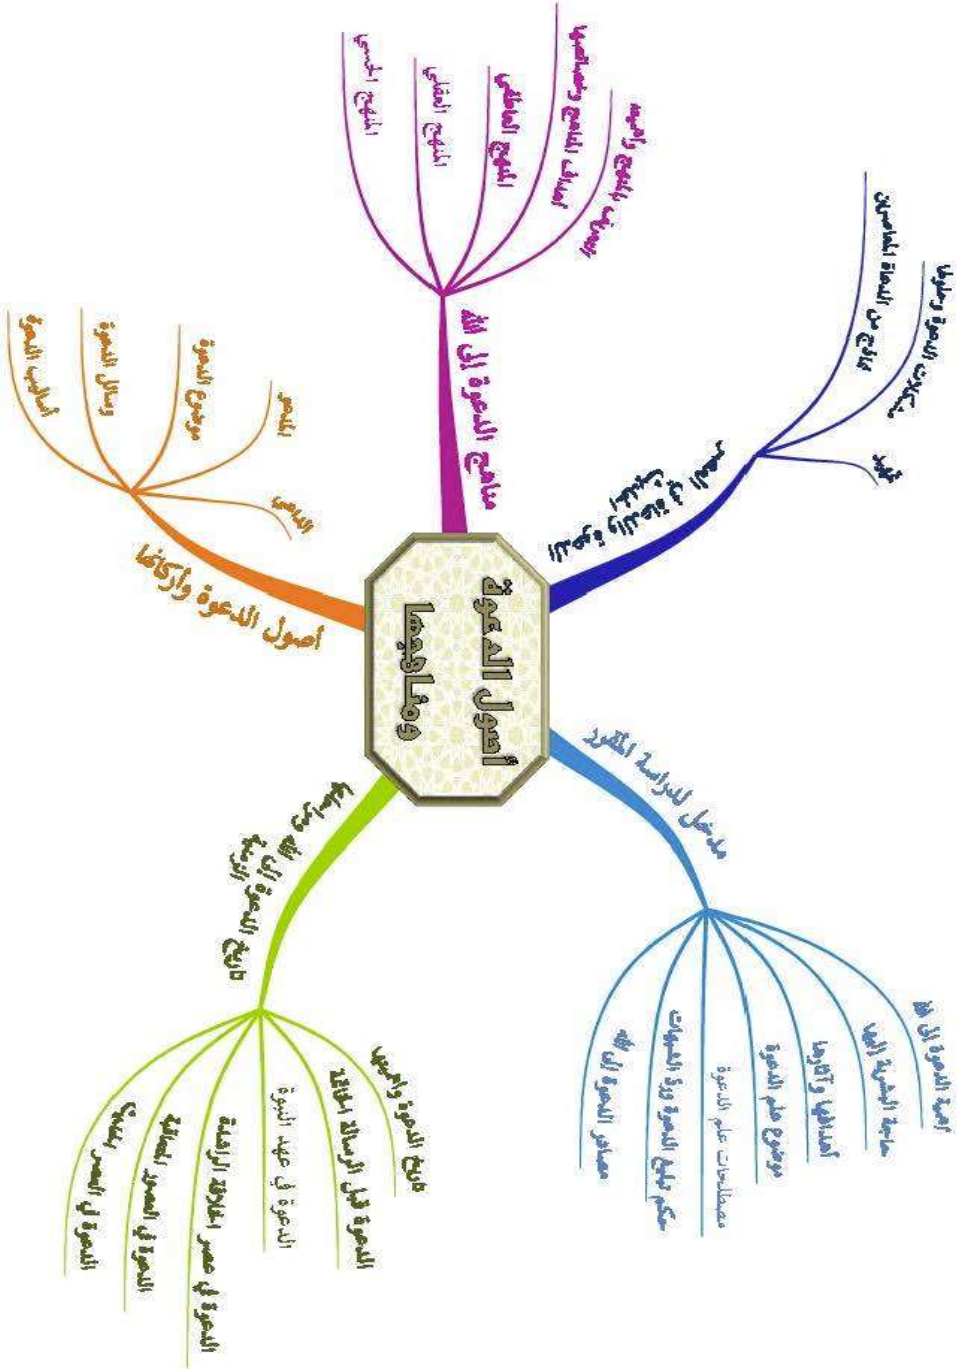 أصول الدعوة
ومناهجها
مدخل لدراسة المقرر
أهمية الدعوة إلى الله
حاجة البشرية إليها
أهدافها وآثارها
موضوع علم الدعوة
مصطلحات علم الدعوة
حكم تبليغ الدعوة ورد الشبهات
مصادر الدعوة إلى الله
تاريخ الدعوة إلى الله ومراحلها
الزمنية
تاريخ الدعوة وأهميتها
الدعوة قبل الرسالة الخاتمة
الدعوة في عهد النبوة
الدعوة في عصر الخلافة الراشدة
الدعوة في العصور
الدعوة في العصر الحديث
أصول الدعوة وأركانها
الداعي
المدعو
موضوع الدعوة
وسائل الدعوة
أساليب الدعوة
مناهج الدعوة إلى الله
التعريف بالمنهج وأهميته
أهداف المناهج وخصائصها
المنهج العاطفي
المنهج العقلي
المنهج الحسي
الدعوة والدعاة في العصر
الحديث
نماذج من الدعاة المعاصرين
مشكلات الدعوة وحلولها